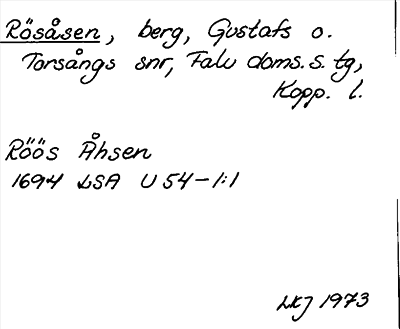 Rösåsen, berg, Gustafs o.
Torsångs snr, Falu doms. s. tg,
Kopp. l.
Röös Åhsen
1694 LSA U 54-1:1
LKJ 1973